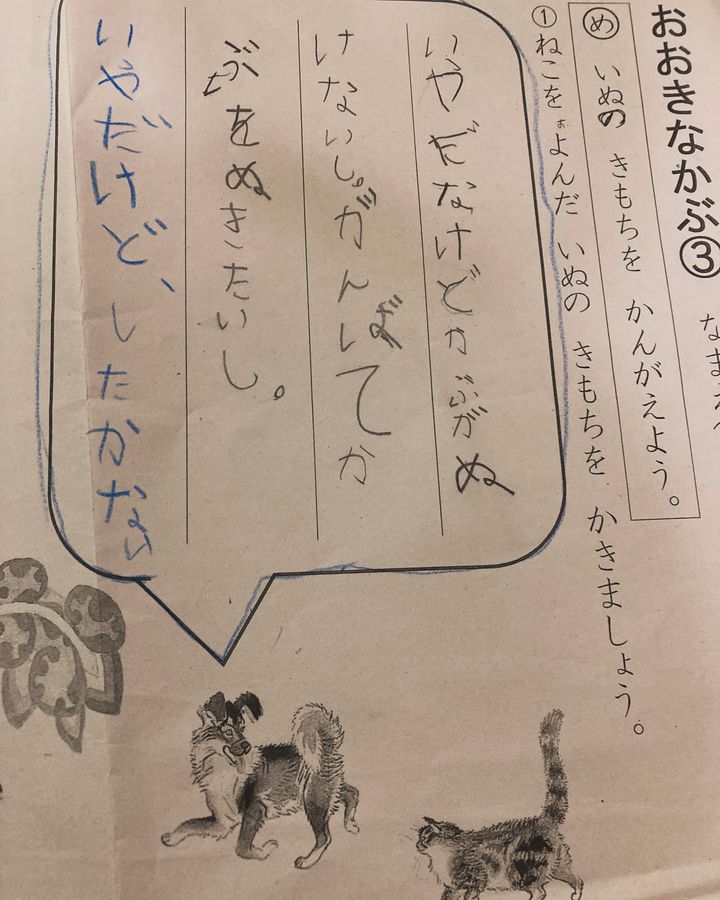 おおきなかぶ③
なまえ
め いぬの きもちを かんがえよう。
①ねこを よんだ いぬの きもちを かきましょう。
いやだなけどかぶがぬ
けないし。がんばてか
ぶをぬきたいし。
いやだけど、したかない